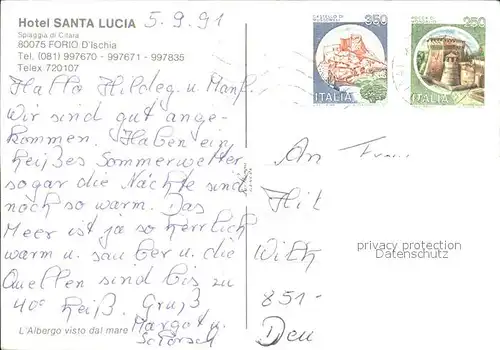 Hotel SANTA LUCIA 5.9.91
Spiaggia di Citara
80075 FORIO D'Ischia
Tel. (081) 997670 - 997671 - 997835
Telex 720107
350
250
ITALIA
ITALIA
Hallo Hildeg. u. Manf.
Wir sind gut ange-
kommen. Haben ein
heißes Sommerwetter
sogar die Nächte sind
noch so warm. Das
Meer ist ja so herrlich
warm u. sauber u. die
Quellen sind bis zu
40° heiß. Gruß
Margot u.
Schorsch
L'Albergo visto dal mare
An
privacy protection
Datenschutz
851-